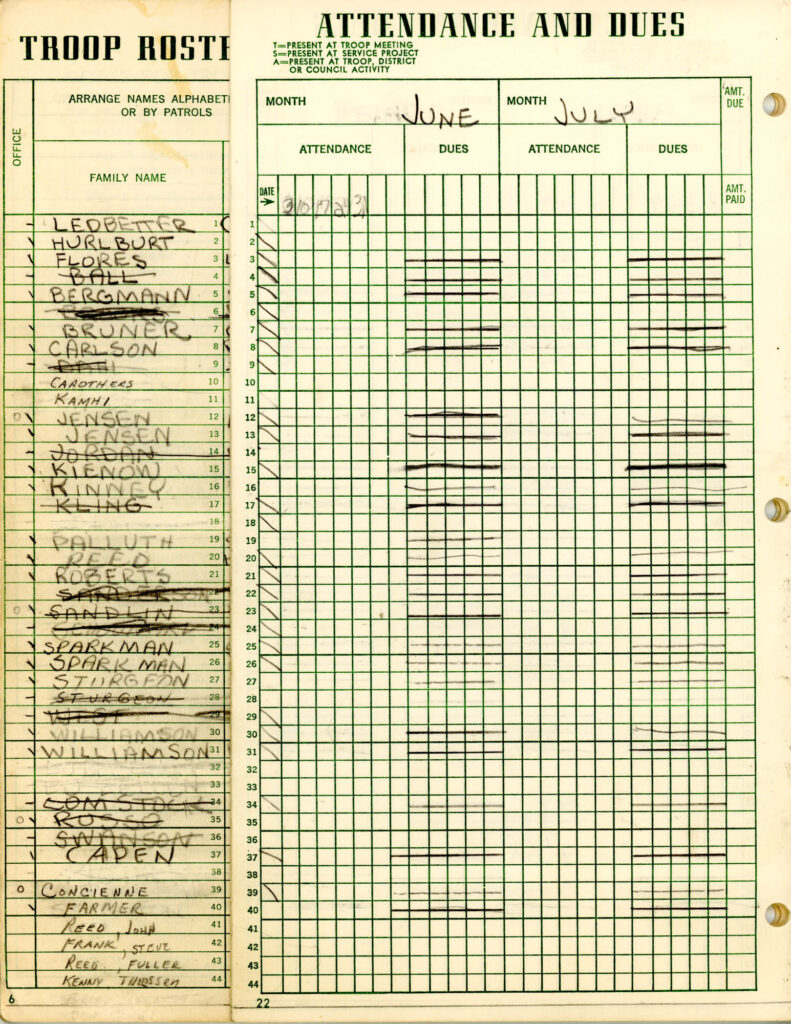 TROOP ROSTE
ARRANGE NAMES ALPHABETI
OR BY PATROLS
OFFICE
FAMILY NAME
LEDBETTER 1
HURLBURT 2
FLORES 3
BALL 4
BERGMANN 5
6
BRUNER 7
CARLSON 8
9
CAROTHERS 10
KAMHI 11
JENSEN 12
JENSEN 13
JORDAN 14
KIENOW 15
KINNEY 16
KLING 17
18
PALLUTH 19
REED 20
ROBERTS 21
SANDERSON
SANDLIN 23
24
SPARKMAN 25
SPARKMAN 26
STURGEON 27
STURGEON 28
WEST 29
WILLIAMSON 30
WILLIAMSON 31
32
33
COMSTOCK 34
RUSSO 35
SWANSON 36
CAPEN 37
38
CONCIENNE 39
FARMER 40
REED, JOHN 41
FRANK, STEVE 42
REED, FULLER 43
KENNY 44
6
ATTENDANCE AND DUES
T=PRESENT AT TROOP MEETING
S=PRESENT AT SERVICE PROJECT
A=PRESENT AT TROOP, DISTRICT
OR COUNCIL ACTIVITY
MONTH JUNE MONTH JULY
AMT.
DUE
ATTENDANCE DUES ATTENDANCE DUES
DATE
3 10 17 24 31
AMT.
PAID
1
2
3
4
5
6
7
8
9
10
11
12
13
14
15
16
17
18
19
20
21
22
23
24
25
26
27
28
29
30
31
32
33
34
35
36
37
38
39
40
41
42
43
44
22